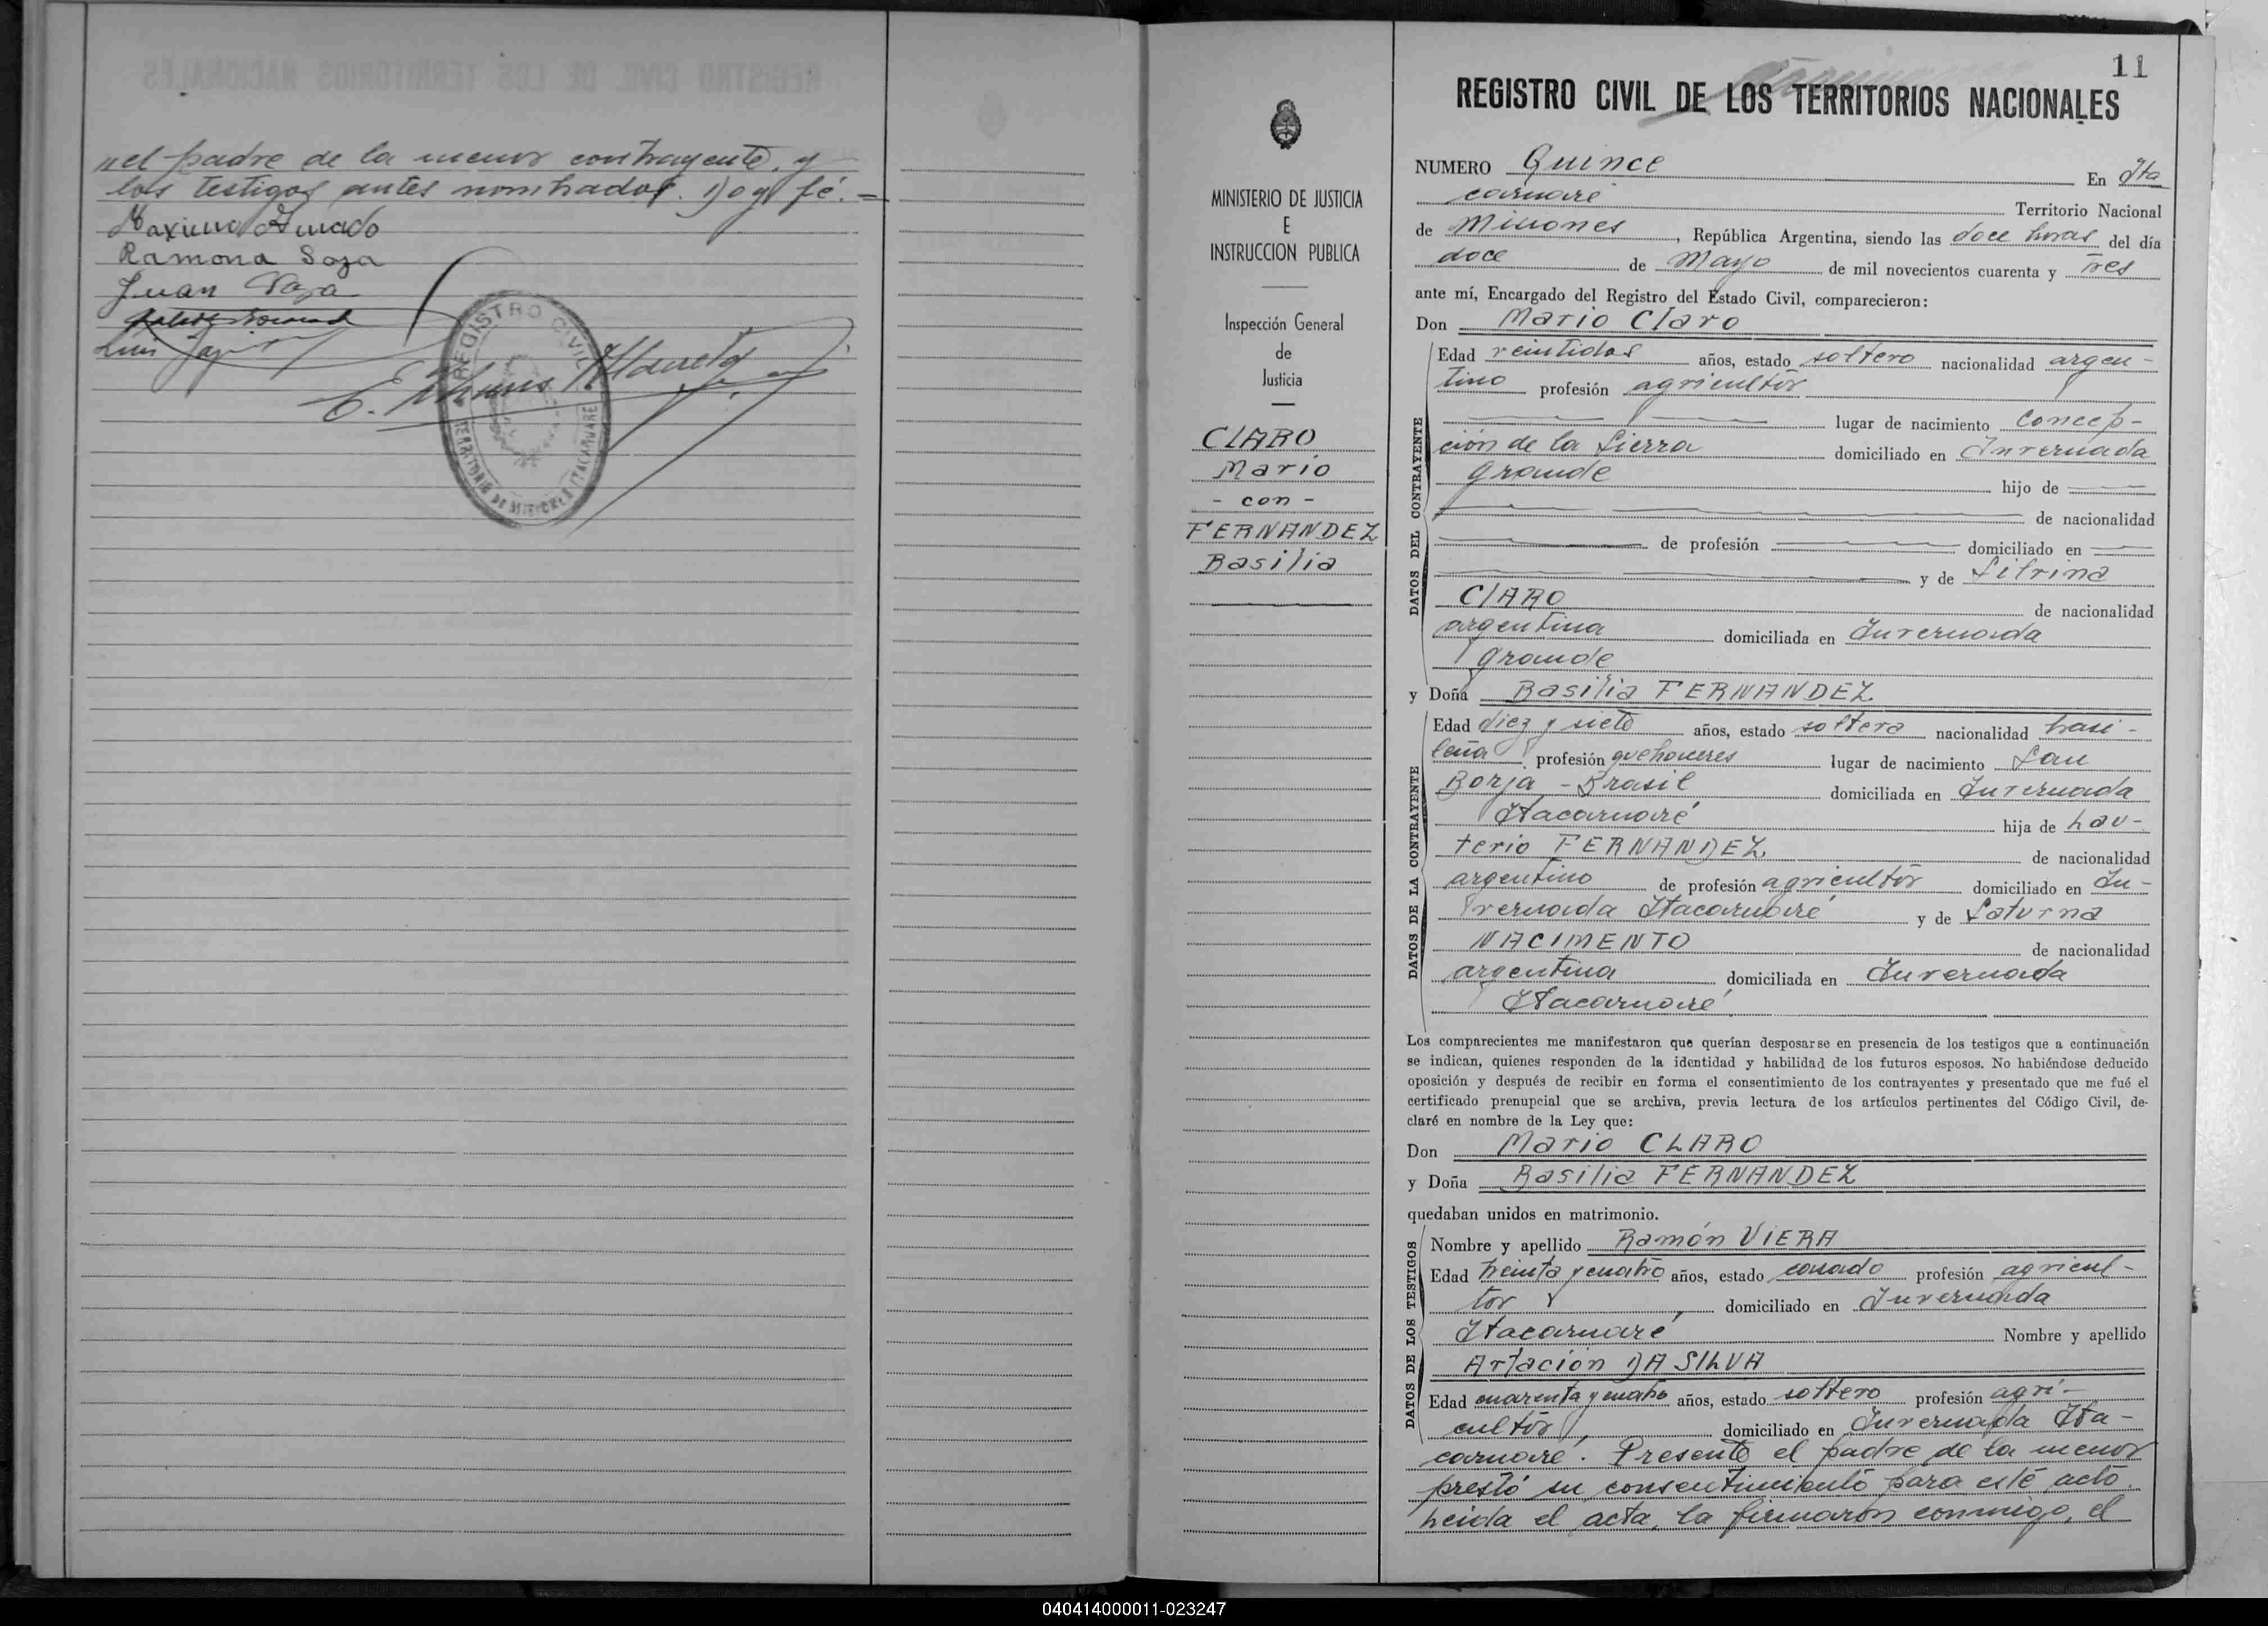 y el padre de la menor contrayente, y
los testigos antes nombrados. Doy fé.=
Ramona Soja
Juan
Luis
REGISTRO CIVIL
TERRITORIO DE MISIONES ITACARUARE
MINISTERIO DE JUSTICIA
E
INSTRUCCION PUBLICA
Inspección General
de
Justicia
CLARO
Mario
- con -
FERNANDEZ
Basilia
11
REGISTRO CIVIL DE LOS TERRITORIOS NACIONALES
NUMERO Quince En Ita
caruaré Territorio Nacional
de Misiones, República Argentina, siendo las doce horas del día
doce de Mayo de mil novecientos cuarenta y tres
ante mí, Encargado del Registro del Estado Civil, comparecieron:
Don Mario Claro
DATOS DEL CONTRAYENTE
Edad veintidos años, estado soltero nacionalidad argen-
tino profesión agricultor
lugar de nacimiento Concep-
ción de la Sierra domiciliado en Invernada
grande hijo de
de nacionalidad
de profesión domiciliado en
y de Sifrina
CLARO de nacionalidad
argentina domiciliada en Invernada
grande
y Doña Basilia FERNANDEZ
DATOS DE LA CONTRAYENTE
Edad diez y siete años, estado soltera nacionalidad brasi-
leña profesión quehaceres lugar de nacimiento San
Borja - Brasil domiciliada en Invernada
Itacaruaré hija de Lau-
terio FERNANDEZ de nacionalidad
argentino de profesión agricultor domiciliado en In-
vernada Itacaruaré y de Saturna
NACIMENTO de nacionalidad
argentina domiciliada en Invernada
Itacaruaré
Los comparecientes me manifestaron que querían desposarse en presencia de los testigos que a continuación
se indican, quienes responden de la identidad y habilidad de los futuros esposos. No habiéndose deducido
oposición y después de recibir en forma el consentimiento de los contrayentes y presentado que me fué el
certificado prenupcial que se archiva, previa lectura de los artículos pertinentes del Código Civil, de-
claré en nombre de la Ley que:
Don Mario CLARO
y Doña Basilia FERNANDEZ
quedaban unidos en matrimonio.
DATOS DE LOS TESTIGOS
Nombre y apellido Ramón VIERA
Edad treinta y cuatro años, estado casado profesión agricul-
tor domiciliado en Invernada
Itacaruaré Nombre y apellido
Artación DA SILVA
Edad cuarenta y cuatro años, estado soltero profesión agri-
cultor, domiciliado en Invernada Ita-
caruaré. Presente el padre de la menor
prestó su consentimiento para este acto.
Leida el acta, la firmaron conmigo, el
040414000011-023247